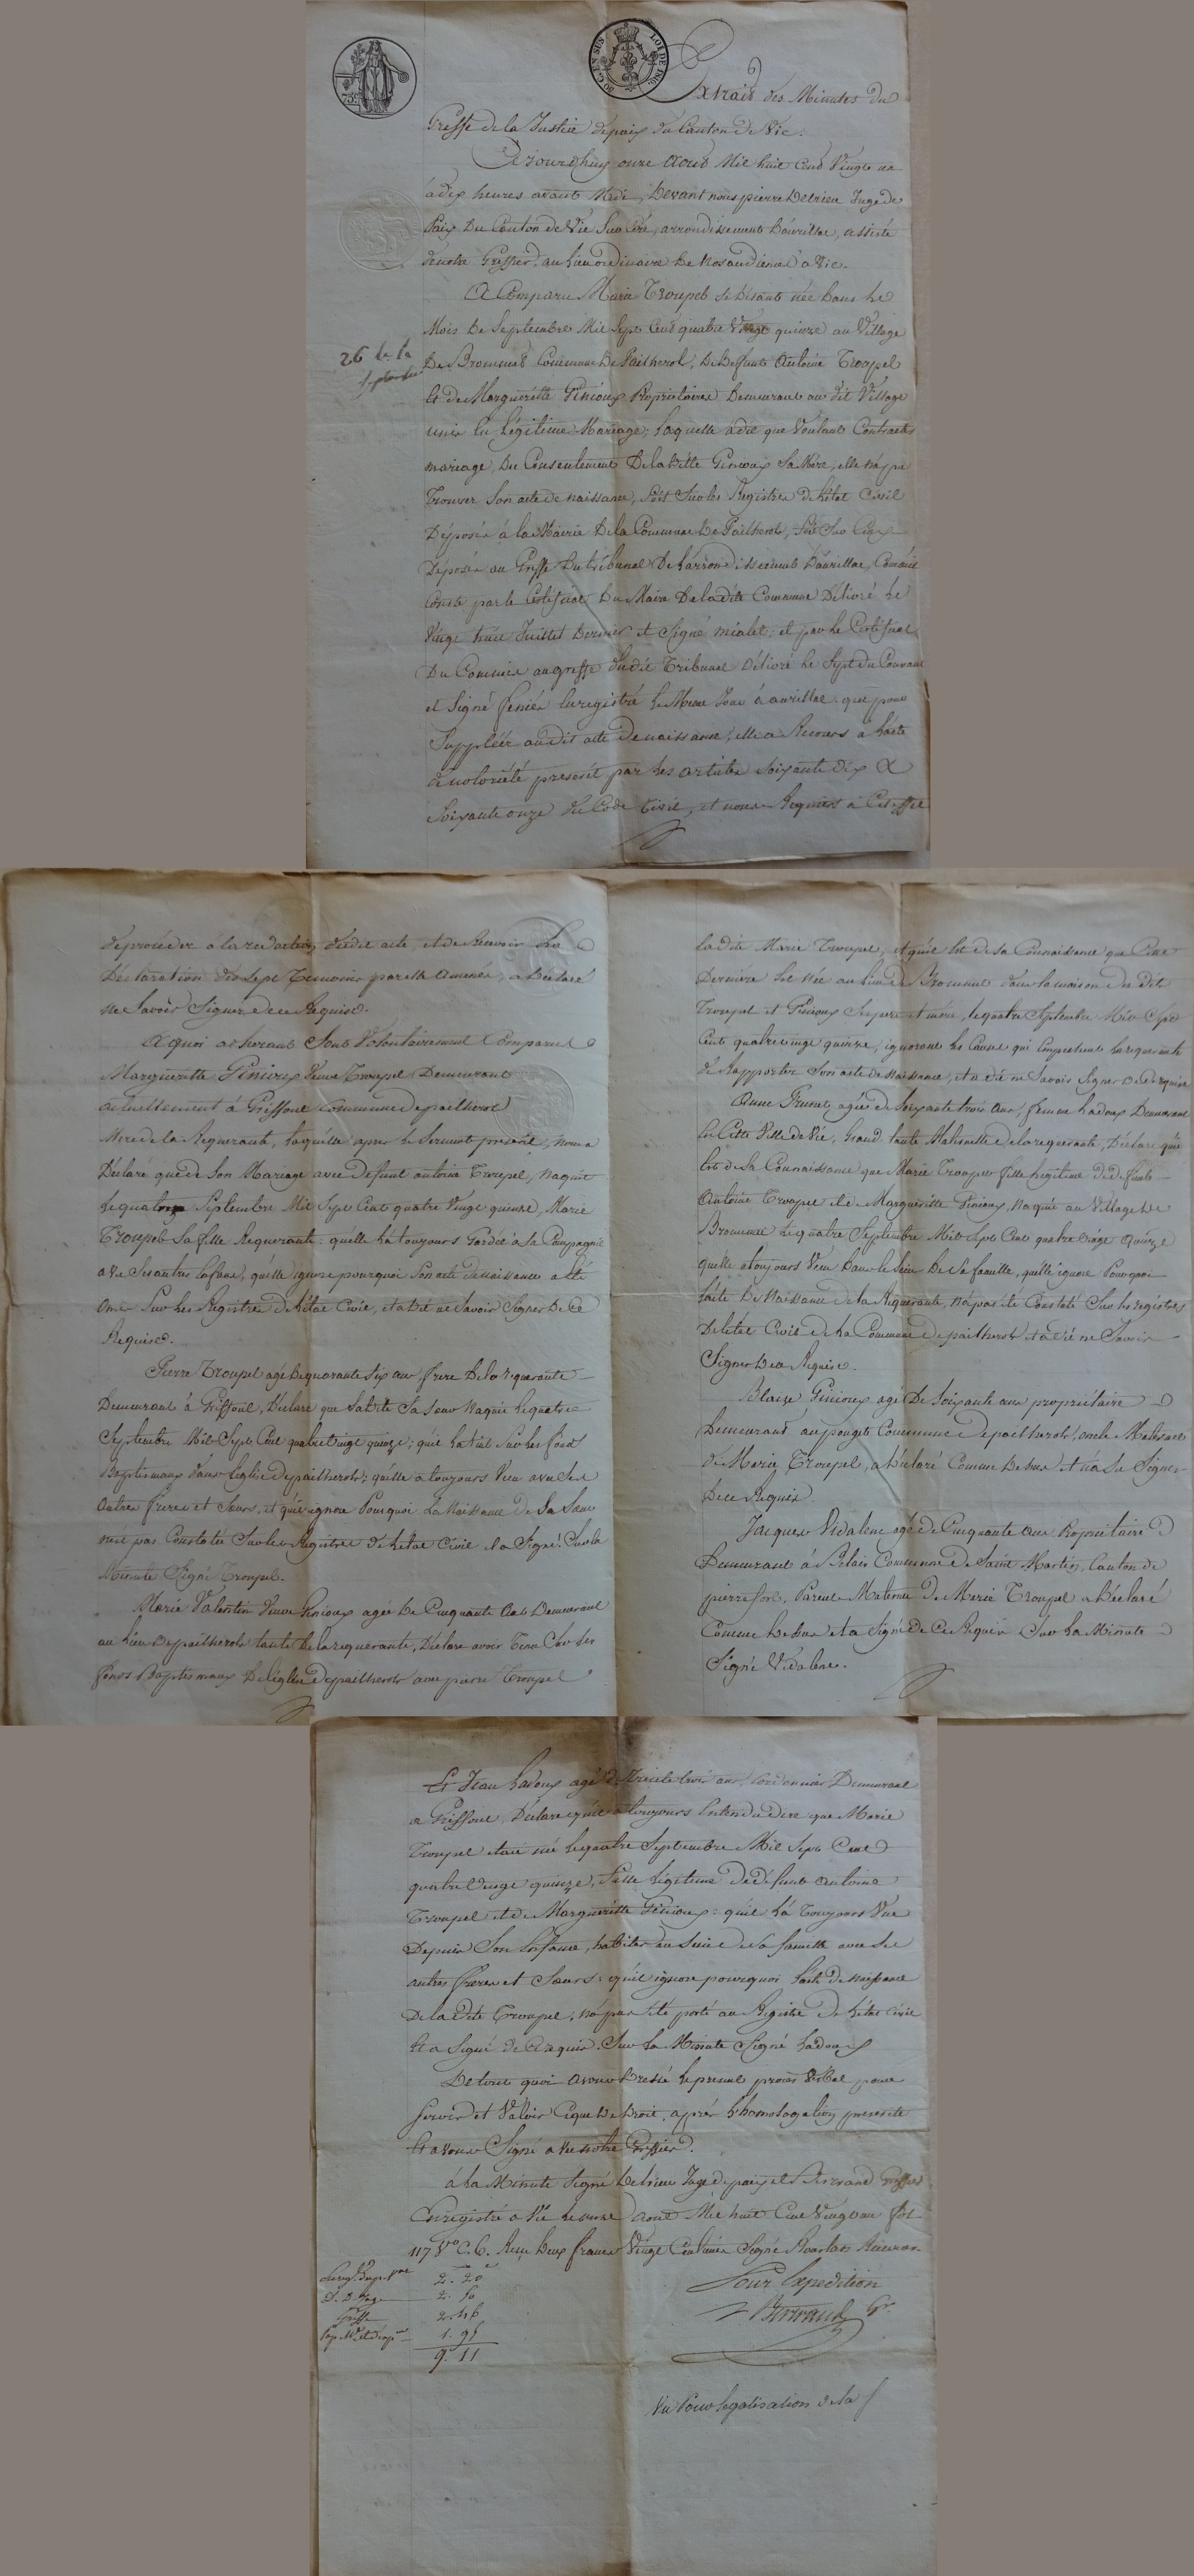 75c
DU C. EN SUS LOI DE 1816
Extrait des Minutes du
Greffe de la Justice depaix du Canton de Vic.
Cejourdhuy onze aout Mil huit Cent Vingt un
a dix heures avant Midi, Devant nous pierre Delrieu Juge de
Paix Du Canton de Vic Sur Cère, arrondissement Daurillac, assisté
denotre Greffier, au lieu ordinaire De Nos audiences a Vic.
A Comparu Marie Troupel se Disant née Dans le
Mois De Septembre Mil Sept Cent quatre Vingt quinze au Village
26 
De Brommes Commune De Pailherol, De Defunt Antoine Troupel
Et de Marguerite Ginioux Propriétaires Demeurant au dit Village
unis En Légitime Mariage; Laquelle adit que Voulant Contracter
mariage Du Consentement De la dite Ginioux Sa Mère, elle n'a pu
Trouver Son acte de naissance, Soit Sur les Registres De l'état Civil
Déposés à la Mairie De la Commune De Pailherols, soit Sur Ceux
Déposés au Greffe Du tribunal De Larrondissement Daurillac, Comme
Conste par le Certificat Du Maire De ladite Commune Délivré le
Vingt Juillet Dernier et Signé mialet; et par le Certificat
Du Commis au greffe dudit Tribunal Délivré le Sept du Courant
et Signé Enregistré le Meme Jour à aurillac. que pour
Suppléer audit acte De naissance, elle a Recours à Lacte
de notoriété prescrit par les articles Soixante dix &
Soixante onze du Code Civil, et nous a Requiers à Cet effet
de procéder à la redaction dudit acte, et de Recevoir La
Déclaration des Sept Temoins par elle Amenés, a Déclaré
ne Savoir Signer de ce Requise.
A quoi adhérant Sont Volontairement Comparus
Marguerite Ginioux Veuve Troupel Demeurant
actuellement à Griffoul Commune de pailherol
Mere de la Requerante, Laquelle apres le Serment preté, nous a
Déclaré que de Son Mariage avec defunt antoine Troupel, naquit
Le quatre Septembre Mil Sept Cent quatre Vingt quinze, Marie
Troupel Sa fille Requerante: quelle l'a toujours Gardée à Sa Compagnie
avec Ses autres Enfans, quelle ignore pourquoi Son acte de naissance a été
omis Sur les Registres De l'état Civil, et a Dit ne Savoir Signer De Ce
Requise.
Pierre Troupel agé de quarante Six ans, frere De la requerante
Demeurant à Griffoul, Déclare que Ladite Sa Sœur naquit le quatre
Septembre Mil Sept Cent quatre Vingt quinze; qu'il la tint Sur les fonds
Baptismaux dans Leglise de pailherols; quelle a toujours Vécu avec Ses
autres freres et Sœurs, et qu'il ignore Pourquoi La Naissance De Sa Sœur
n'est pas Constatée Sur les Registres De L'état Civil et a Signé. Sur la
Minute Signé Troupel.
Marie Valentin Veuve Ginioux agée De Cinquante Ans Demeurant
au lieu de pailherols tante De la requerante, Déclare avoir Tenu Sur les
fonds Baptismaux De L'église de pailherols avec pierre Troupel
ladite Marie Troupel, et quil Est de Sa Connaissance que Cette
Dernière Est Née au lieu de Brommes dans la maison des dits
Troupel et Ginioux Ses pere et mère, le quatre Septembre Mil Sept
Cent quatre vingt quinze, ignorant les Causes qui Empechent La requerante
de Rapporter Son acte de Naissance, et a dit ne Savoir Signer de Ce requise
Anne Grunet, agée de Soixante trois Ans, femme Ladoux Demeurant
En Cette Ville de Vic, Grand tante Maternelle de la requerante, Déclare qu'il
Est de Sa Connaissance que Marie Troupel fille Légitime de defunt
Antoine Troupel et de Marguerite Ginioux, Naquit au Village de
Brommes le quatre Septembre Mil Sept Cent quatre Vingt Quinze
quelle a toujours Vécu Dans le Sein De Sa famille, quelle ignore Pourquoi
l'acte De Naissance De la Requerante, n'a pas été Constaté Sur les registres
De l'état Civil de La Commune de pailherols et a dit ne Savoir
Signer De Ce Requise.
Blaise Ginioux agé De Soixante ans propriétaire
Demeurant au pouget Commune de pailherols, oncle Maternel
de Marie Troupel, a Déclaré Comme De Sus et n'a Su Signer
De ce Requis
Jacques Vidalenc agé de Cinquante Ans Propriétaire
Demeurant à Commune de Saint Martin, Canton de
pierrefort, Parent Maternel De Marie Troupel a Déclaré
Comme De Sus et a Signé de Ce Requis Sur La Minute
Signé Vidalenc.
Et Jean Ladoux agé De Trente trois ans, Cordonnier Demeurant
a Griffoul, Déclare qu'il a toujours Entendu dire que Marie
Troupel était née le quatre Septembre Mil Sept Cent
quatre Vingt quinze, fille Légitime De defunt Antoine
Troupel et de Marguerite Ginioux: qu'il l'a Toujours Vue
Depuis Son Enfance, habiter au Sein de Sa famille avec Ses
autres freres et Sœurs: qu'il ignore pourquoi l'acte De naissance
De ladite Troupel, n'a pas été porté au Registre De l'état Civil
Et a Signé de Ce requis. Sur la Minute Signé Ladoux
De tout quoi avons Dressé le present procès Verbal pour
Servir et Valoir Ce que De Droit, après L'homologation prescrite
Et avons Signé avec notre Greffier.
à la Minute Signé Delrieu Juge de paix et Bertrand Greffier
Enregistré a Vic le onze aout Mil huit Cent Vingt un fol
117 Vº C. 6. Reçu Deux francs Vingt Centimes Signé Receveur
2. 20
2. 50
Greffe 2. 46
1. 95
9. 11
Pour Expedition
Bertrand Gr
Vu Pour legalisation de la